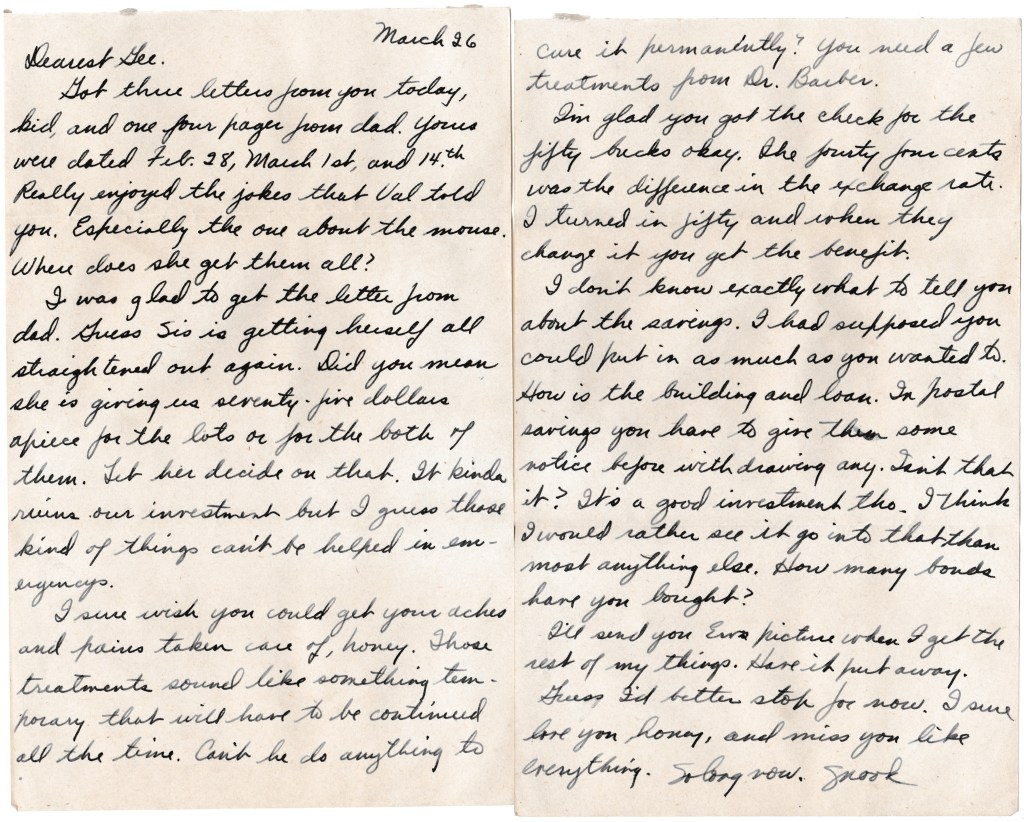 March 26
Dearest Gee.
Got three letters from you today,
kid, and one four pager from dad. Yours
were dated Feb. 28, March 1st, and 14.th
Really enjoyed the jokes that Val told
you. Especially the one about the mouse.
Where does she get them all?
I was glad to get the letter from
dad. Guess Sis is getting herself all
straightened out again. Did you mean
she is giving us seventy-five dollars
apiece for the lots or for the both of
them. Let her decide on that. It kinda
ruins our investment but I guess those
kind of things can't be helped in em-
ergencys.
I sure wish you could get your aches
and pains taken care of, honey. Those
treatments sound like something tem-
porary that will have to be continued
all the time. Can't he do anything to
cure it permanently? You need a few
treatments from Dr. Barber.
I'm glad you got the check for the
fifty bucks okay. The fourty four cents
was the difference in the exchange rate.
I turned in fifty and when they
change it you get the benefit.
I don't know exactly what to tell you
about the savings. I had supposed you
could put in as much as you wanted to.
How is the building and loan. In postal
savings you have to give them some
notice before withdrawing any. Isn't that
it? It's a good investment tho. I think
I would rather see it go into that than
most anything else. How many bonds
have you bought?
I'll send you picture when I get the
rest of my things. Have it put away.
Guess I'd better stop for now. I sure
love you honey, and miss you like
everything. So long now. Snook